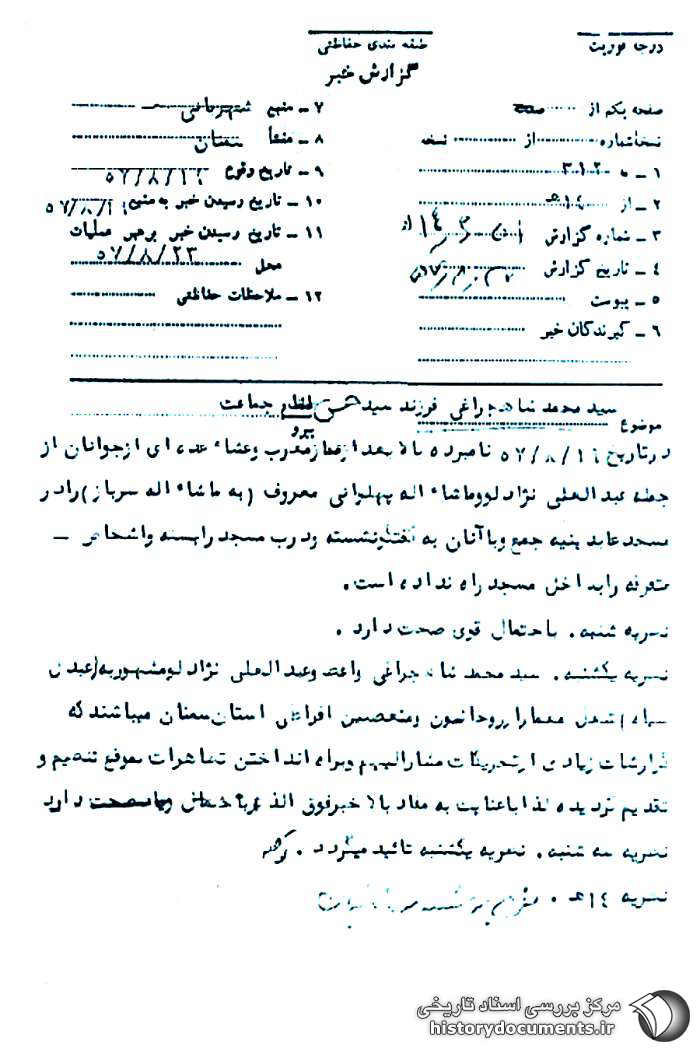 درجه فوریت
طبقه بندی حفاظتی
گزارش خبر
صفحه یکم از صفحه
نسخه شماره از نسخه
۱ - به ۳۱۲
۲ - از ۱۴ هـ
۳ - شماره گزارش
۴ - تاریخ گزارش
۵ - پیوست
۶ - گیرندگان خبر
۷ - منبع شهربانی
۸ - منشأ سمنان
۹ - تاریخ وقوع ۵۷/۸/۱۶
۱۰ - تاریخ رسیدن خبر به منبع ۵۷/۸/
۱۱ - تاریخ رسیدن خبر برهبر عملیات
محل ۵۷/۸/۲۳
۱۲ - ملاحظات حفاظتی
موضوع سید محمد شاهچراغی فرزند سید حسن جماعت
پیرو
در تاریخ ۵۷/۸/۱۶ نامبرده بالا بعد از نماز مغرب و عشاء عده ای از جوانان از
جمله عبدالعلی نژاد لو و ماشاء اله پهلوانی معروف (به ماشاء اله سرباز) را در
مسجد عابدینیه جمع و با آنان به گفتگو نشسته و درب مسجد را بسته و اشخاص -
متفرقه را بداخل مسجد راه نداده است.
نظریه شنبه. باحتمال قوی صحت دارد.
نظریه یکشنبه. سید محمد شاهچراغی واعظ و عبدالعلی نژاد لو مشهور به (عبدل
سیاه) شغل معمار از روحانیون و متعصبین افراطی استان سمنان میباشند که
گزارشات زیادی از تحریکات مشارالیهم و براه انداختن تظاهرات بموقع تنظیم و
تقدیم گردیده لذا با عنایت به مفاد بالا خبر فوق الذکر صحت دارد
نظریه سه شنبه. نظریه یکشنبه تائید میگردد.
نظریه ۱۴ هـ.
مرکز بررسی اسناد تاریخی
historydocuments.ir